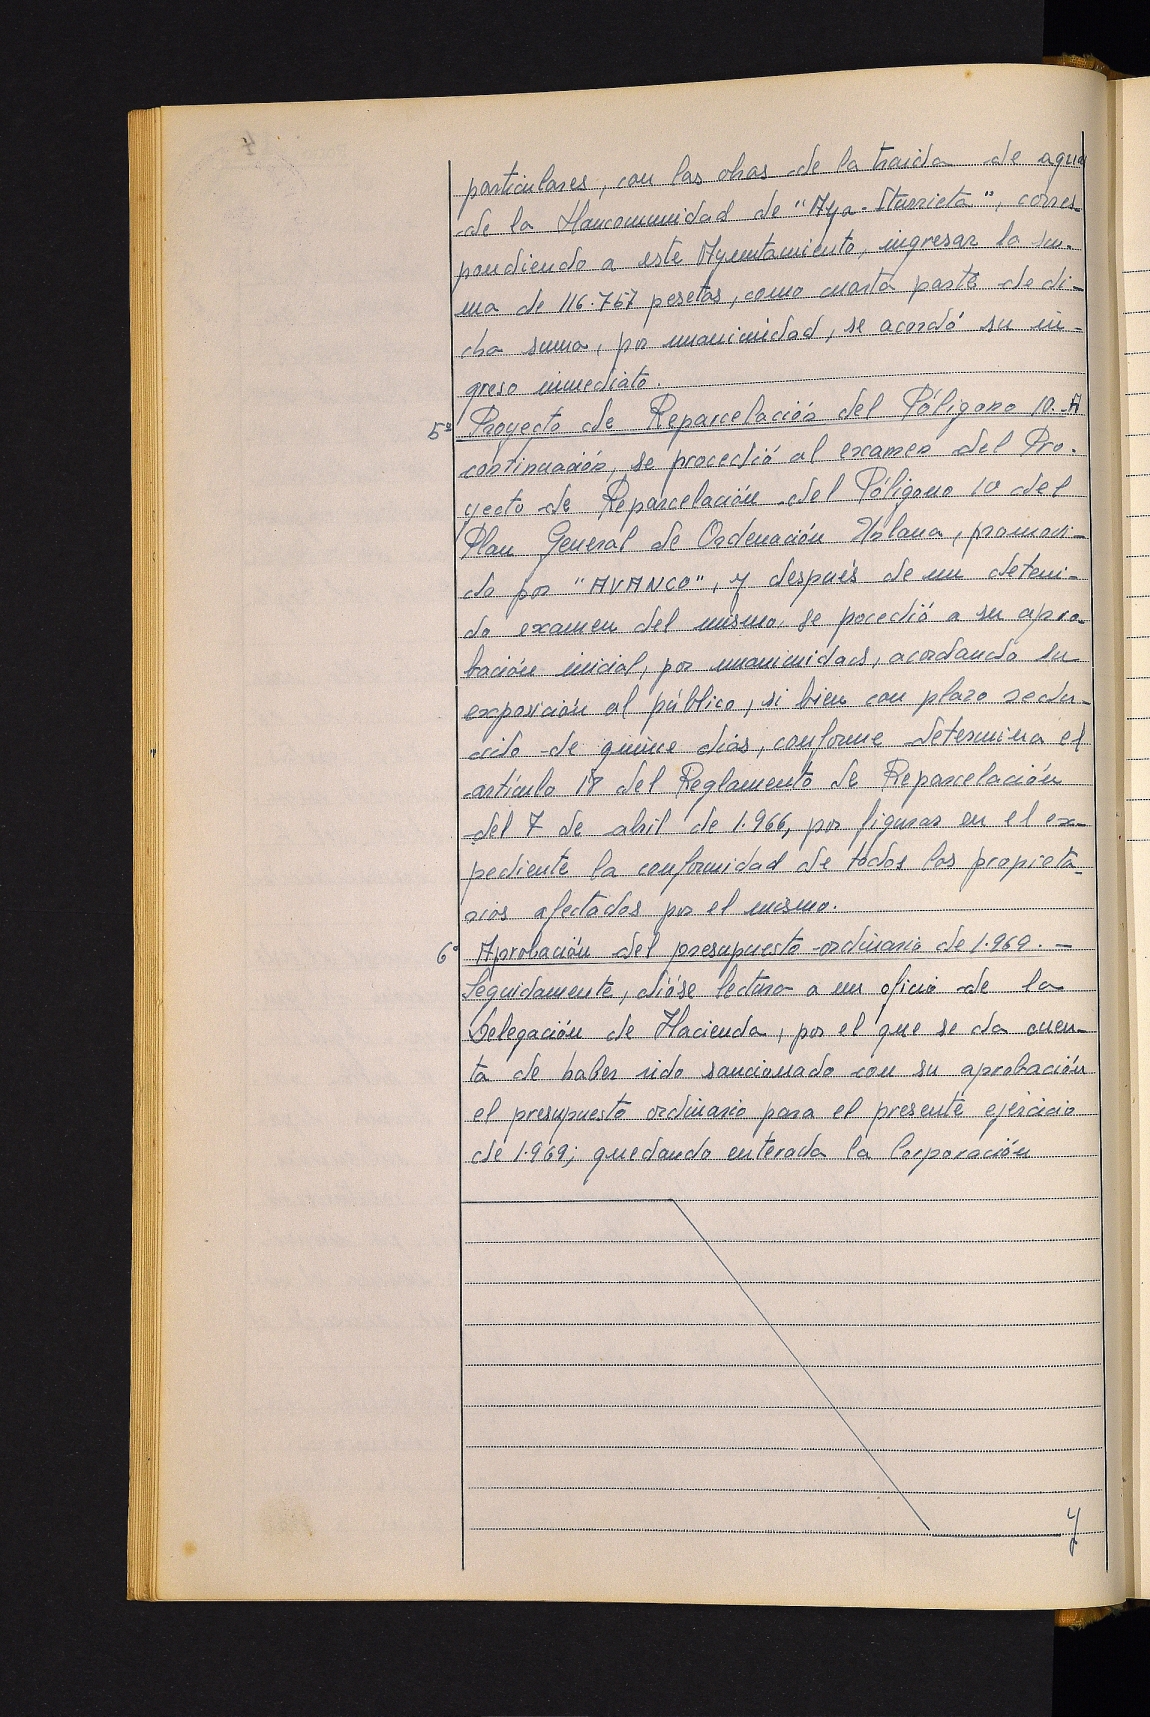 particulares, con las obras de la traida de agua
de la Mancomunidad de "Aya-Iturrieta", corres-
pondiendo a este Ayuntamiento, ingresar la su-
ma de 116.767 pesetas, como cuarta parte de di-
cha suma, por unanimidad, se acordó su in-
greso inmediato.
5º Proyecto de Reparcelación del Póligono 10.- A
continuación, se procedió al examen del Pro-
yecto de Reparcelación del Póligono 10 del
Plan General de Ordenación Urbana, promovi-
do por "AVANCO", y después de un deteni-
do examen del mismo, se pocedió a su apro-
bación inicial, por unanimidad, acordando su
exposición al público, si bien con plazo redu-
cido de quince días, conforme determina el
artículo 18 del Reglamento de Reparcelación
del 7 de abril de 1.966, por figurar en el ex-
pediente la conformidad de todos los propieta-
rios afectados por el mismo.
6º Aprobación del presupuesto ordinario de 1.969. -
Seguidamente, dióse lectura a un oficio de la
Delegación de Hacienda, por el que se da cuen-
ta de haber sido sancionado con su aprobación
el presupuesto ordinario para el presente ejercicio
de 1.969; quedando enterada la Corporación
y